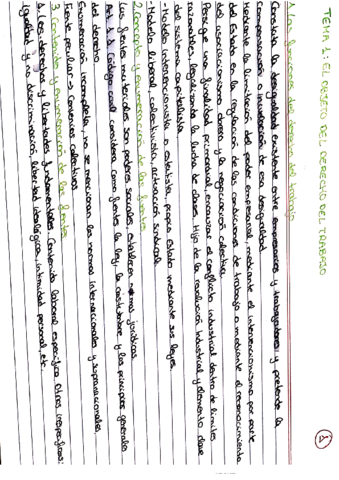 TEMA 1: EL OBJETO DEL DERECHO DEL TRABAJO
1
1. Las funciones del derecho del trabajo
Constata la desigualdad existente entre empresarios y trabajadores y pretende la
compensación o nivelación de esa desigualdad
Mediante la limitación del poder empresarial, mediante el intervencionismo por parte
del Estado en la regulación de las condiciones de trabajo o mediante el reconocimiento
del asociacionismo obrero y la negociación colectiva.
Persigue una finalidad primordial, encauzar el conflicto industrial dentro de límites
razonables, legalizando la lucha de clases. Hijo de la revolución industrial y elemento clave
del sistema capitalista.
- Modelo intervencionista: estatista, propio estado mediante sus leyes.
- Modelo liberal, colectivista, actuación sindical.
2. Concepto y enumeración de las fuentes
Las fuentes materiales son poderes sociales, establecen normas jurídicas
Art. 1 Código civil considera como fuentes la ley, la costumbre y los principios generales
del derecho
Enumeración incompleta, no se mencionan las normas internacionales y supranacionales.
Fuente peculiar → Convenios colectivos
3. Contenido y enumeración de las fuentes
1. Los derechos y libertades fundamentales. Contenido laboral específico. Otros inespecíficos:
igualdad y no discriminación, libertad ideológica, intimidad personal, etc.